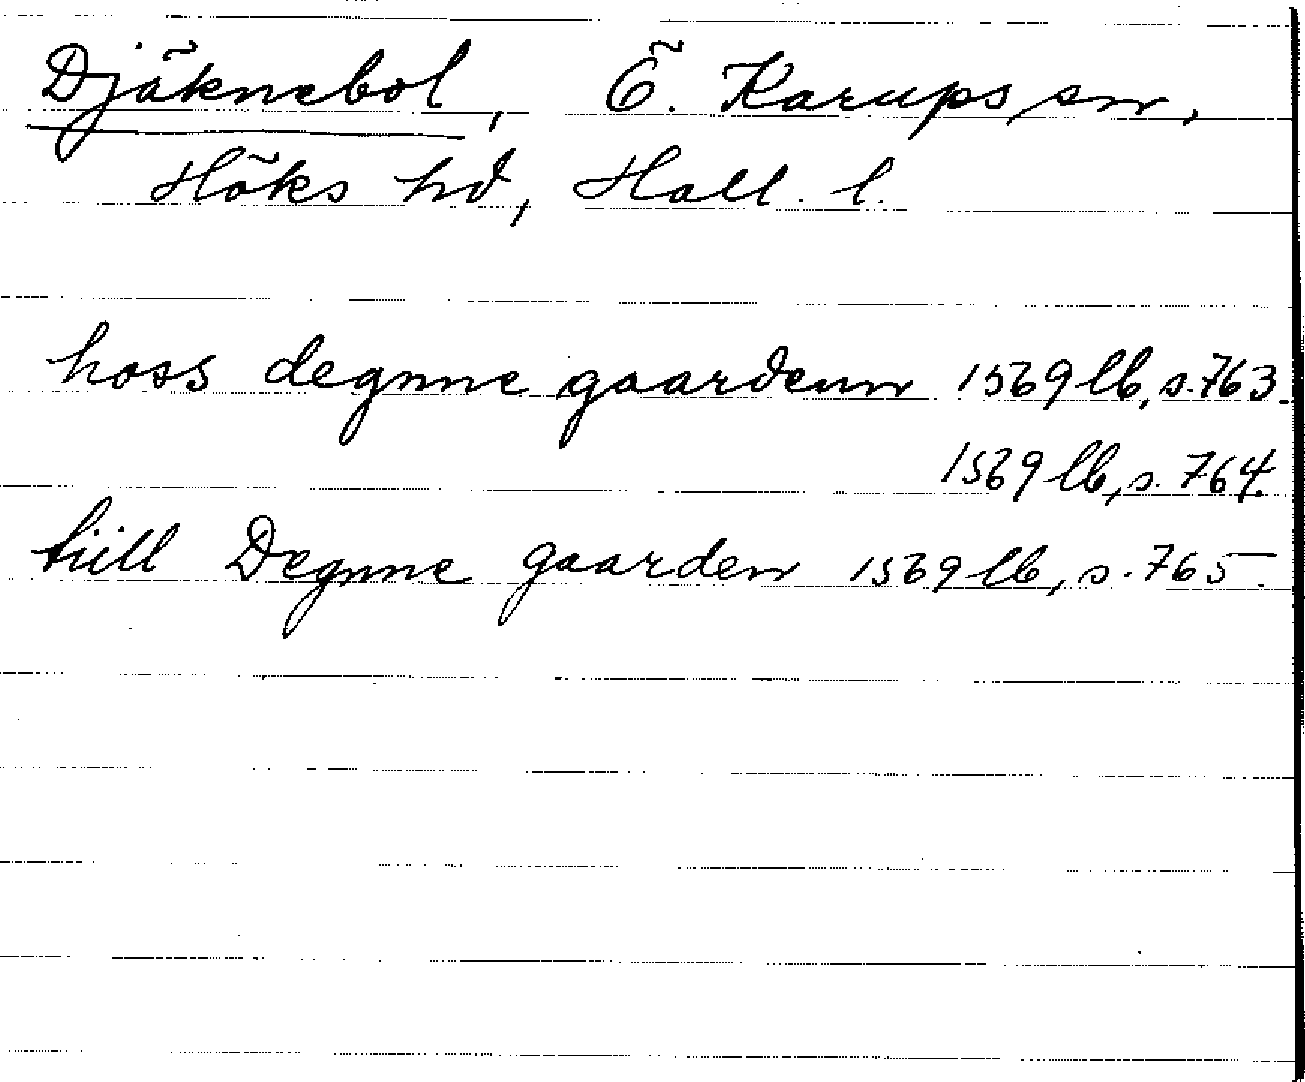 Djäknebol, Ö. Karups sn,
Höks hd, Hall. l.
hoss degnne gaardenn 1569 lb, s. 763.
1569 lb, s. 764.
tiill Degnne gaarden 1569 lb, s. 765.